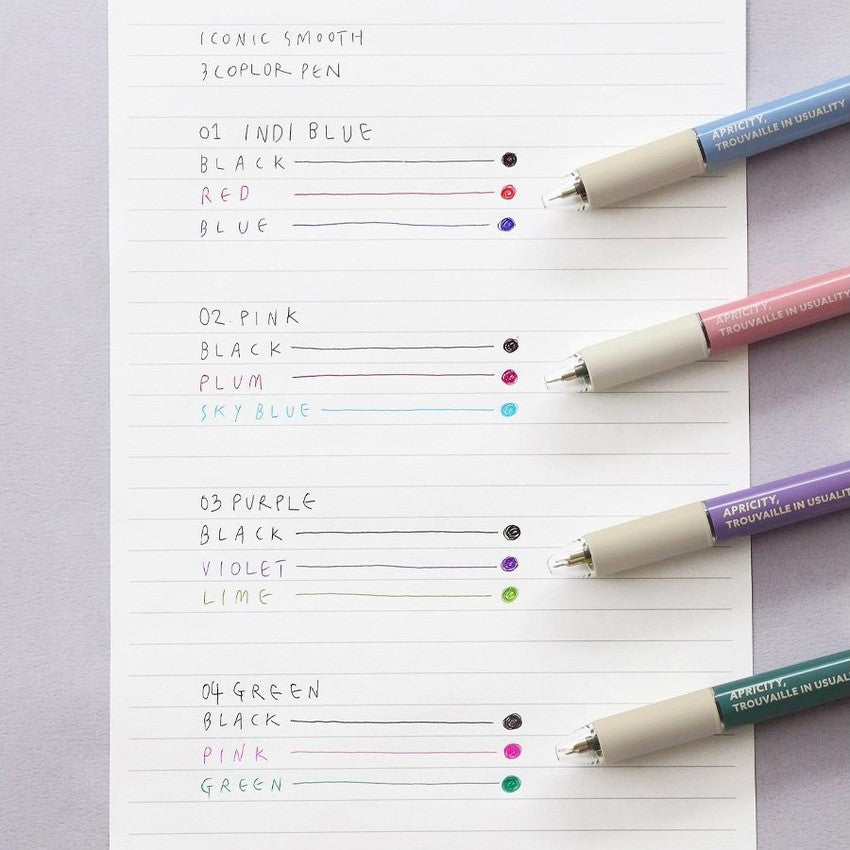 ICONIC SMOOTH
3 COPLOR PEN
01 INDI BLUE
BLACK
RED
BLUE
02. PINK
BLACK
PLUM
SKY BLUE
03 PURPLE
BLACK
VIOLET
LIME
04 GREEN
BLACK
PINK
GREEN
APRICITY,
TROUVAILLE IN USUALITY
APRICITY,
TROUVAILLE IN USUALITY
APRICITY,
TROUVAILLE IN USUALIT
APRICITY,
TROUVAILLE IN USUAL